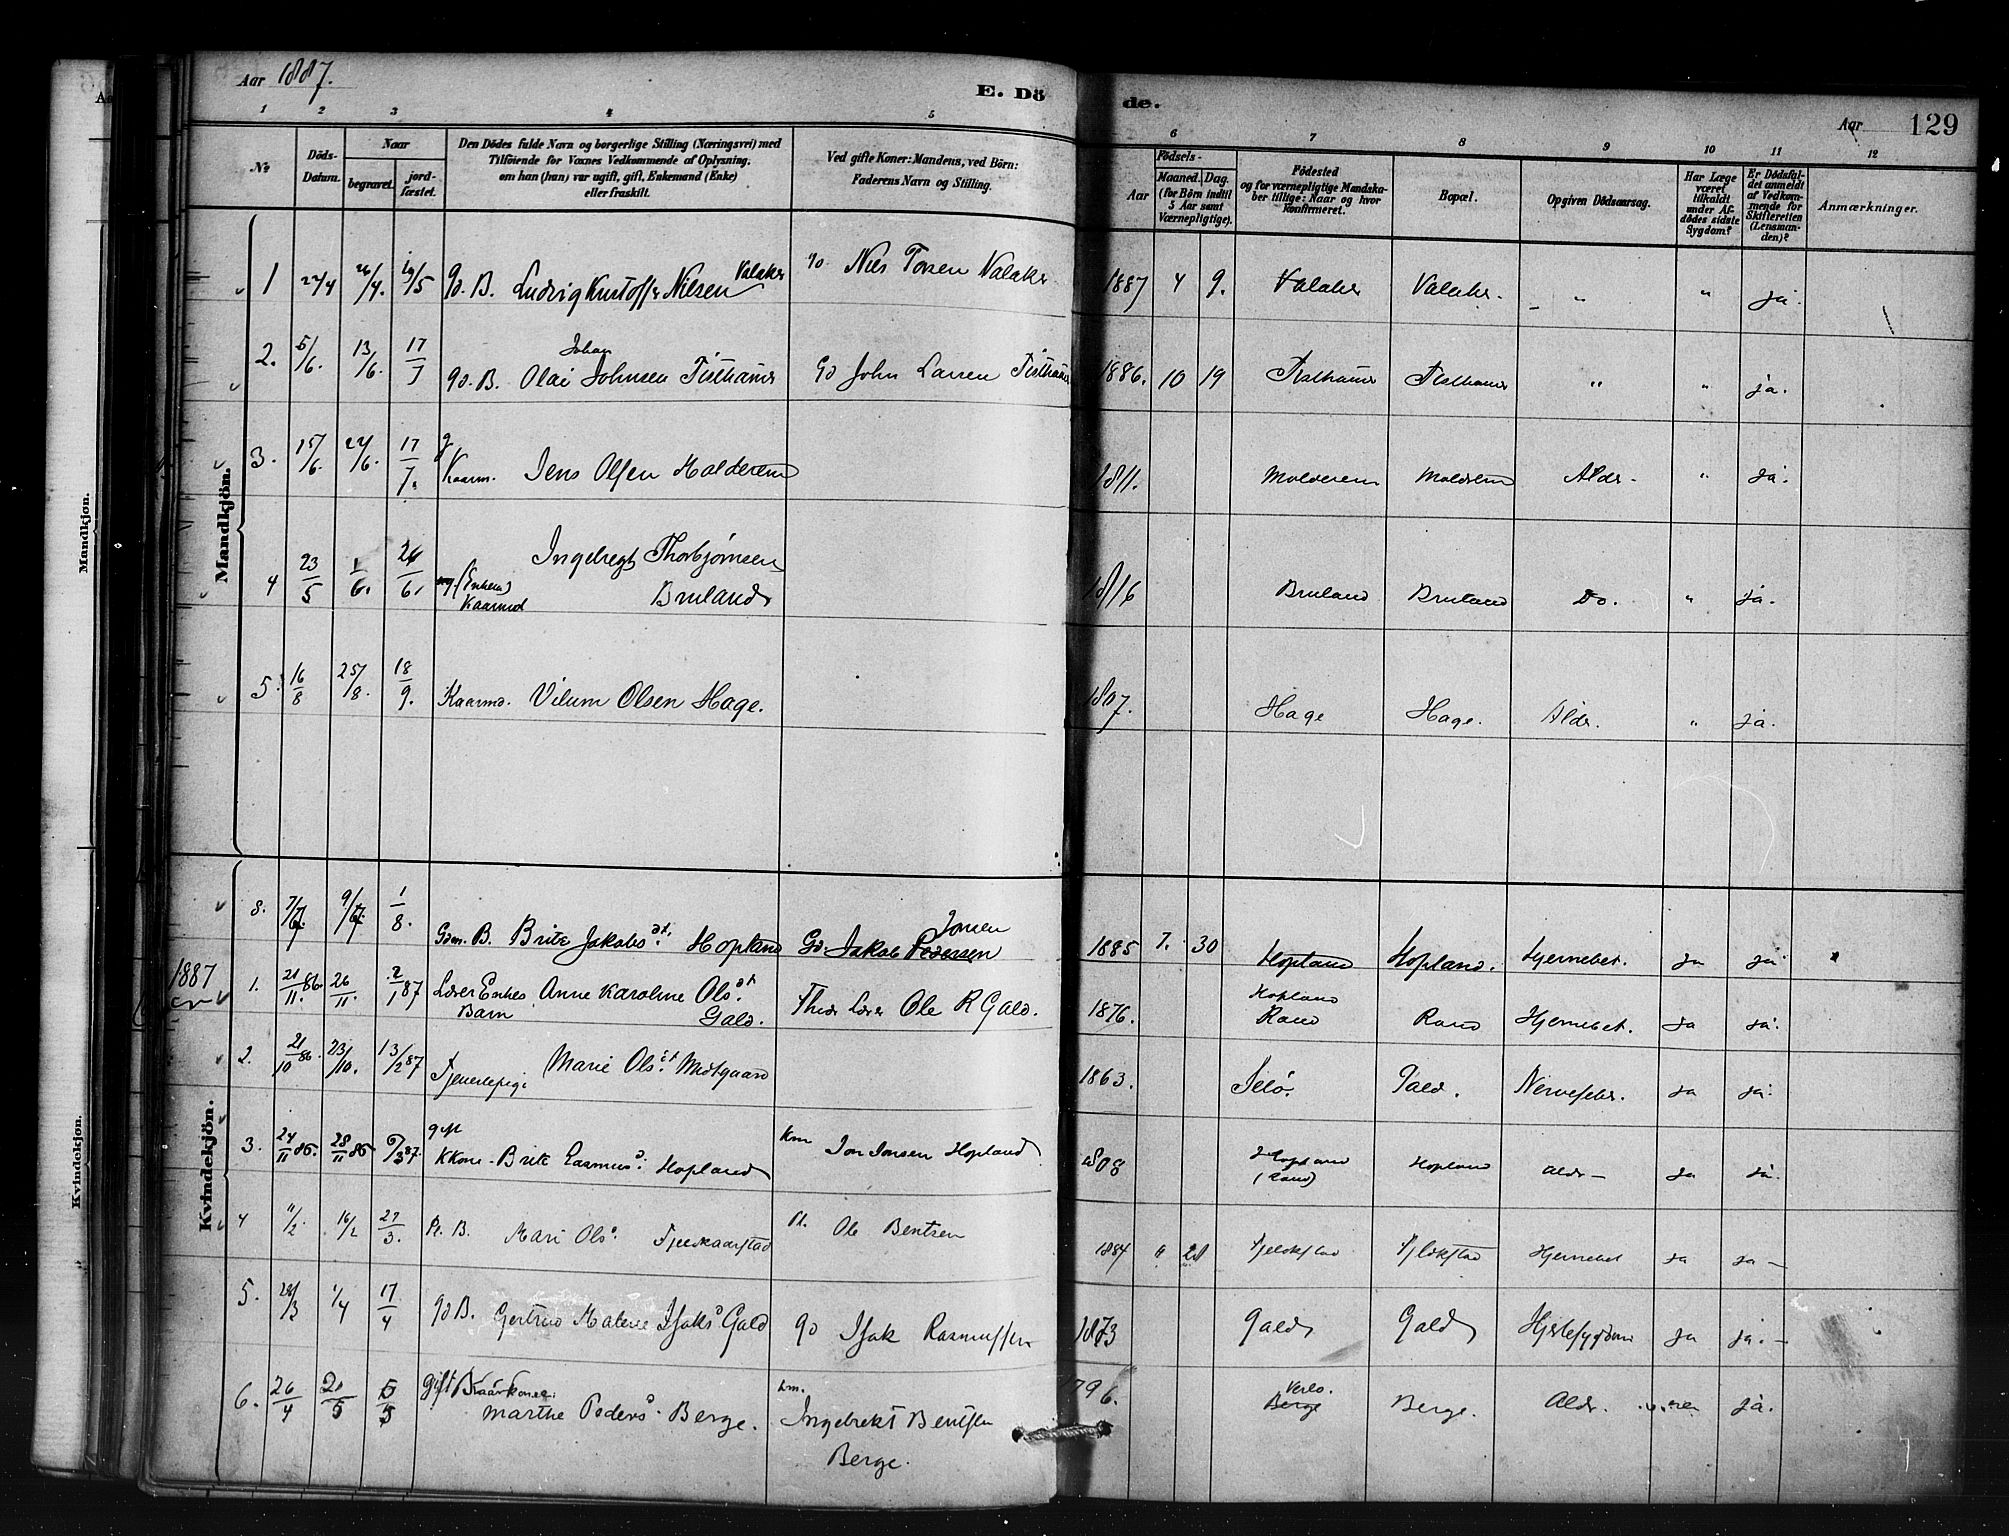 Aar 1887.
E. Dö
de.
Aar
129
1 2 3 4 5 6 7 8 9 10 11 12
No
Döds-Datum.
Naar
begravet.
jord-fæstet.
Den Dödes fulde Navn og borgerlige Stilling (Næringsvei) med
Tilföiende for Voxnes Vedkommende af Oplysning,
om han (hun) var ugift, gift, Enkemand (Enke)
eller fraskilt.
Ved gifte Koner: Mandens, ved Börn:
Faderens Navn og Stilling.
Aar
Födsels-
Maaned. Dag.
(for Börn indtil
5 Aar samt
Værnepligtige).
Födested
og for værnepligtige Mandska-
ber tillige: Naar og hvor
Konfirmeret.
Bopæl.
Opgiven Dödsaarsag.
Har Læge
været
tilkaldt
under Af-
dödes sidste
Sygdom?
Er Dödsfal-
det anmeldt
af Vedkom-
mende for
Skifteretten
(Lensman-
den)?
Anmærkninger.
Mandkjön.
1 24/4 26/4. 19/5 Gd. B. Ludvig Kristoffer Nilsen Valaker Gd. Nils Torsen Valaker 1887 4 9. Valaker Valaker. " " ja.
2. 5/6. 13/6. 17/7 Gd. B. Olai Johan Johnsen Tisthamer Gd John Larsen Tisthamer 1886. 10 19 Tisthamer Tisthamer " " ja.
3. 15/6. 24/6. 17/7. g Kaarm. Jens Olsen Molderem 1811. Molderem Molderem Alder - " ja.
4 23/5 6. 26/6. (Enkem) Kaarmd Ingebregt Thorbjørnsen
Bruland 1816 Bruland Bruland Do. " ja.
5. 16/8 25/8. 18/9. Kaarmd. Vilum Olsen Hage. 1807. Hage Hage. Alder. " ja.
Kvindekjön.
8. 7/7. 9/7. 1/8. Gdm. B. Brite Jakobsdt. Hopland Gd. Jakob Pedersen Jonsen 1885 7. 30 Hopland Hopland. Hjernebet. ja ja
1887
1. 21/11. 86. 26/11. 2/1 87 Lærer Enkes Barn Anne Karoline Olsdt.
Gald. Lærer Ole R Gald. 1876. Hopland
Rand Rand Hjernebet. ja ja.
2. 21/10 86. 23/10. 13/2 87 Tjenestepige Marie Olsdt Midtgaard 1863. Selø. Gald. Nervefeber. ja ja.
3. 24/11 86. 28/11 86 6/3 87. gift
KKone - Brite Rasmusd: Hopland Km Jon Jonsen Hopland 1808 Hopland
(Rand) Hopland Alder - ja ja.
4 11/2. 16/2 27/3. Pl. B. Mari Olsd Fjelskaarstad Pl. Ole Bentsen 1884 28 Hjernebet ja ja -
5. 28/3 1/4 17/4 Gd B. Gertrud Malene Isaksd Gald Gd Isak Rasmussen 1873 Gald Gald Hjertesygdom ja ja. -
6. 26/4 5 5 Gift Kaarkone:
Marthe Pedersd. Berge. Km. Ingebrekt Bentsen
Berge. 1796. Berge Berge. Alder. ja.
Mandkjøn.
Kvindekjøn.